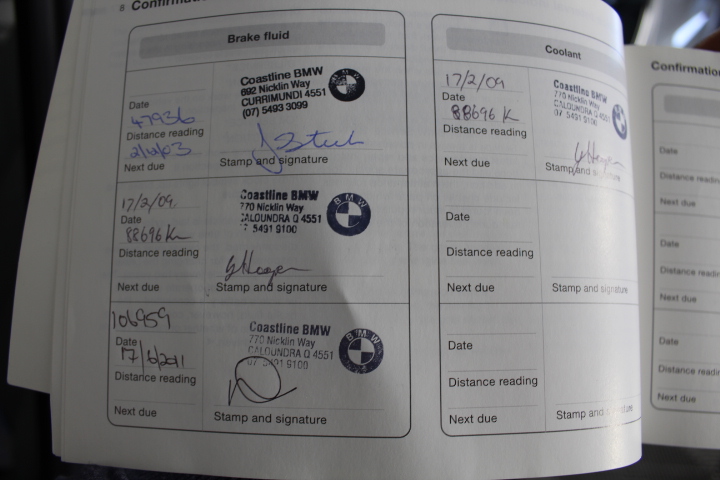 8 Confirmation
Brake fluid
Coastline BMW
692 Nicklin Way
CURRIMUNDI 4551
(07) 5493 3099
BMW
Date
47936
Distance reading
2/12/03
Next due
Stamp and signature
17/2/09.
Date
88696 K
Distance reading
Next due
Coastline BMW
770 Nicklin Way
CALOUNDRA Q 4551
5491 9100
BMW
Stamp and signature
106959
Date
17/6/2011
Distance reading
Next due
Coastline BMW
770 Nicklin Way
CALOUNDRA Q 4551
07 5491 9100
BMW
Stamp and signature
Coolant
17/2/09
Date
88696 K
Distance reading
Next due
Coastline BMW
770 Nicklin Way
CALOUNDRA Q 4551
07 5491 9100
Stamp and signature
Date
Distance reading
Next due
Stamp and signature
Date
Distance reading
Next due
Stamp and
Confirmation
Date
Distance readin
Next due
Date
Distance readin
Next due
Date
Distance readin
Next due